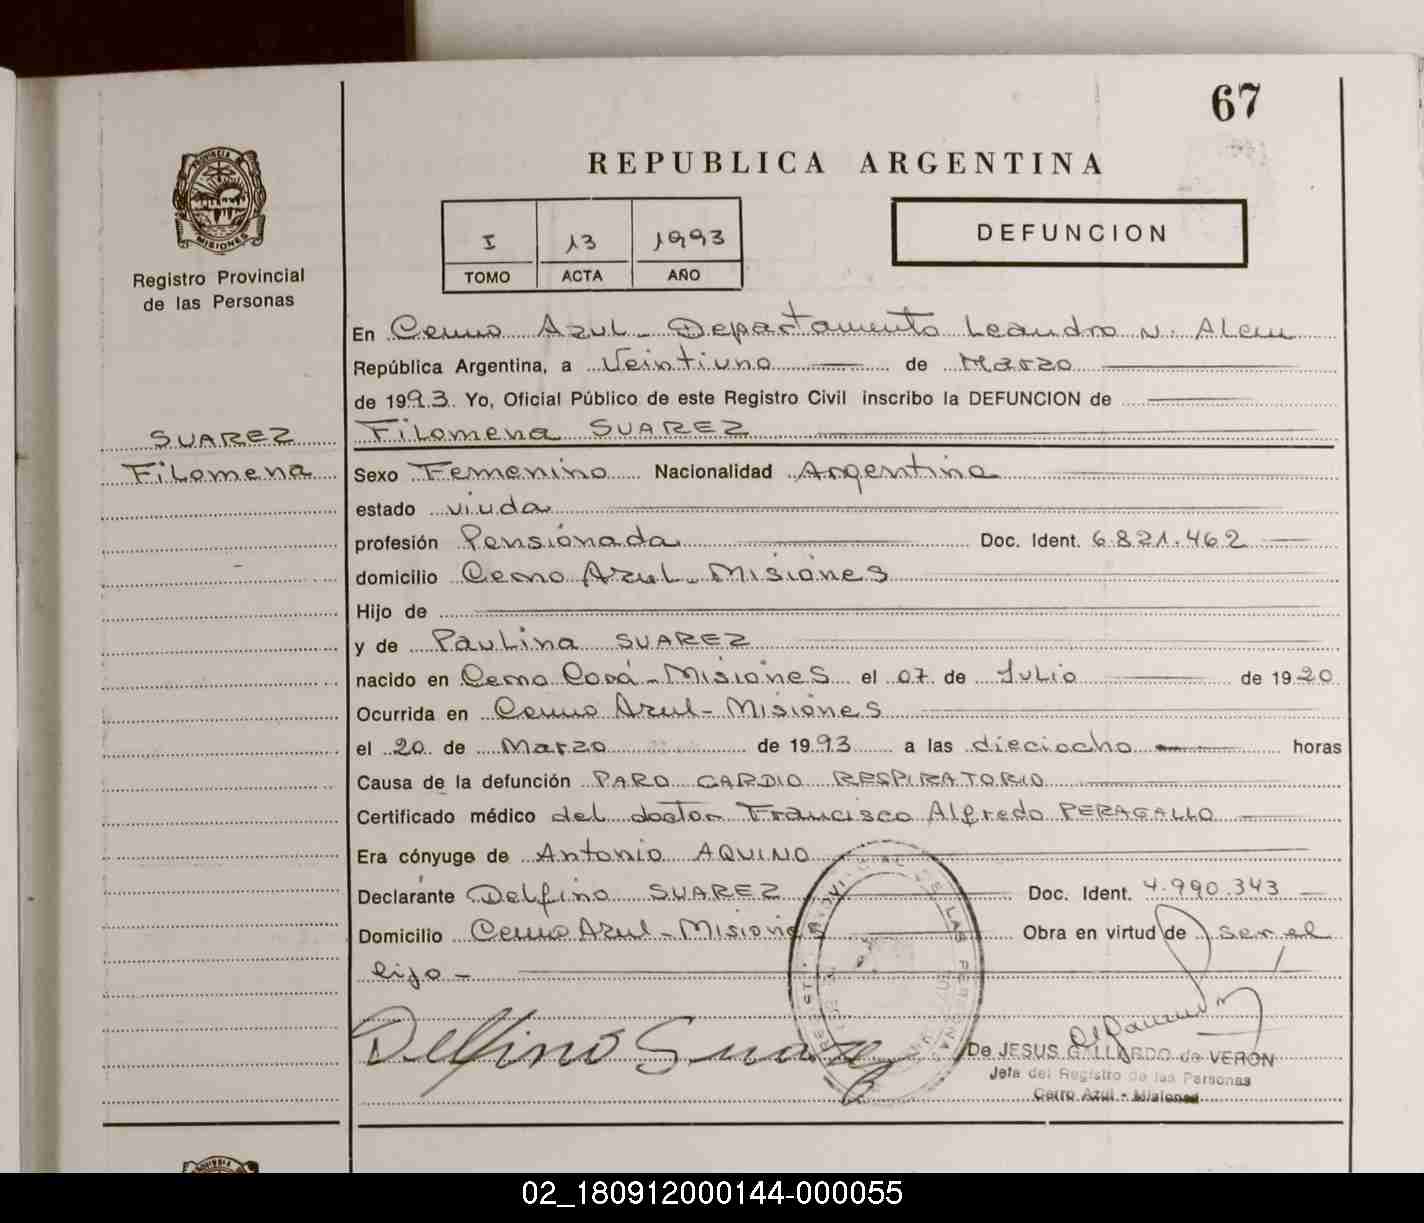 67
REPUBLICA ARGENTINA
PROVINCIA DE
MISIONES
Registro Provincial
de las Personas
I 13 1993
TOMO ACTA AÑO
DEFUNCION
En Cerro Azul - Departamento Leandro N. Alem
República Argentina, a Veintiuno de Marzo
de 1993. Yo, Oficial Público de este Registro Civil inscribo la DEFUNCION de
SUAREZ
Filomena SUAREZ
Filomena
Sexo Femenino Nacionalidad Argentina
estado viuda
profesión Pensionada Doc. Ident. 6.821.462
domicilio Cerro Azul - Misiones
Hijo de
y de Paulina SUAREZ
nacido en Cerro Corá - Misiones el 07 de Julio de 1920
Ocurrida en Cerro Azul - Misiones
el 20 de Marzo de 1993 a las dieciocho horas
Causa de la defunción PARO CARDIO RESPIRATORIO
Certificado médico del doctor Francisco Alfredo PERAGALLO
Era cónyuge de Antonio AQUINO
Declarante Delfino SUAREZ Doc. Ident. 4.990.343
Domicilio Cerro Azul - Misiones Obra en virtud de ser el
hijo -
Delfino Suarez
De JESUS GALLARDO de VERON
Jefa del Registro de las Personas
Cerro Azul - Misiones
02_180912000144-000055